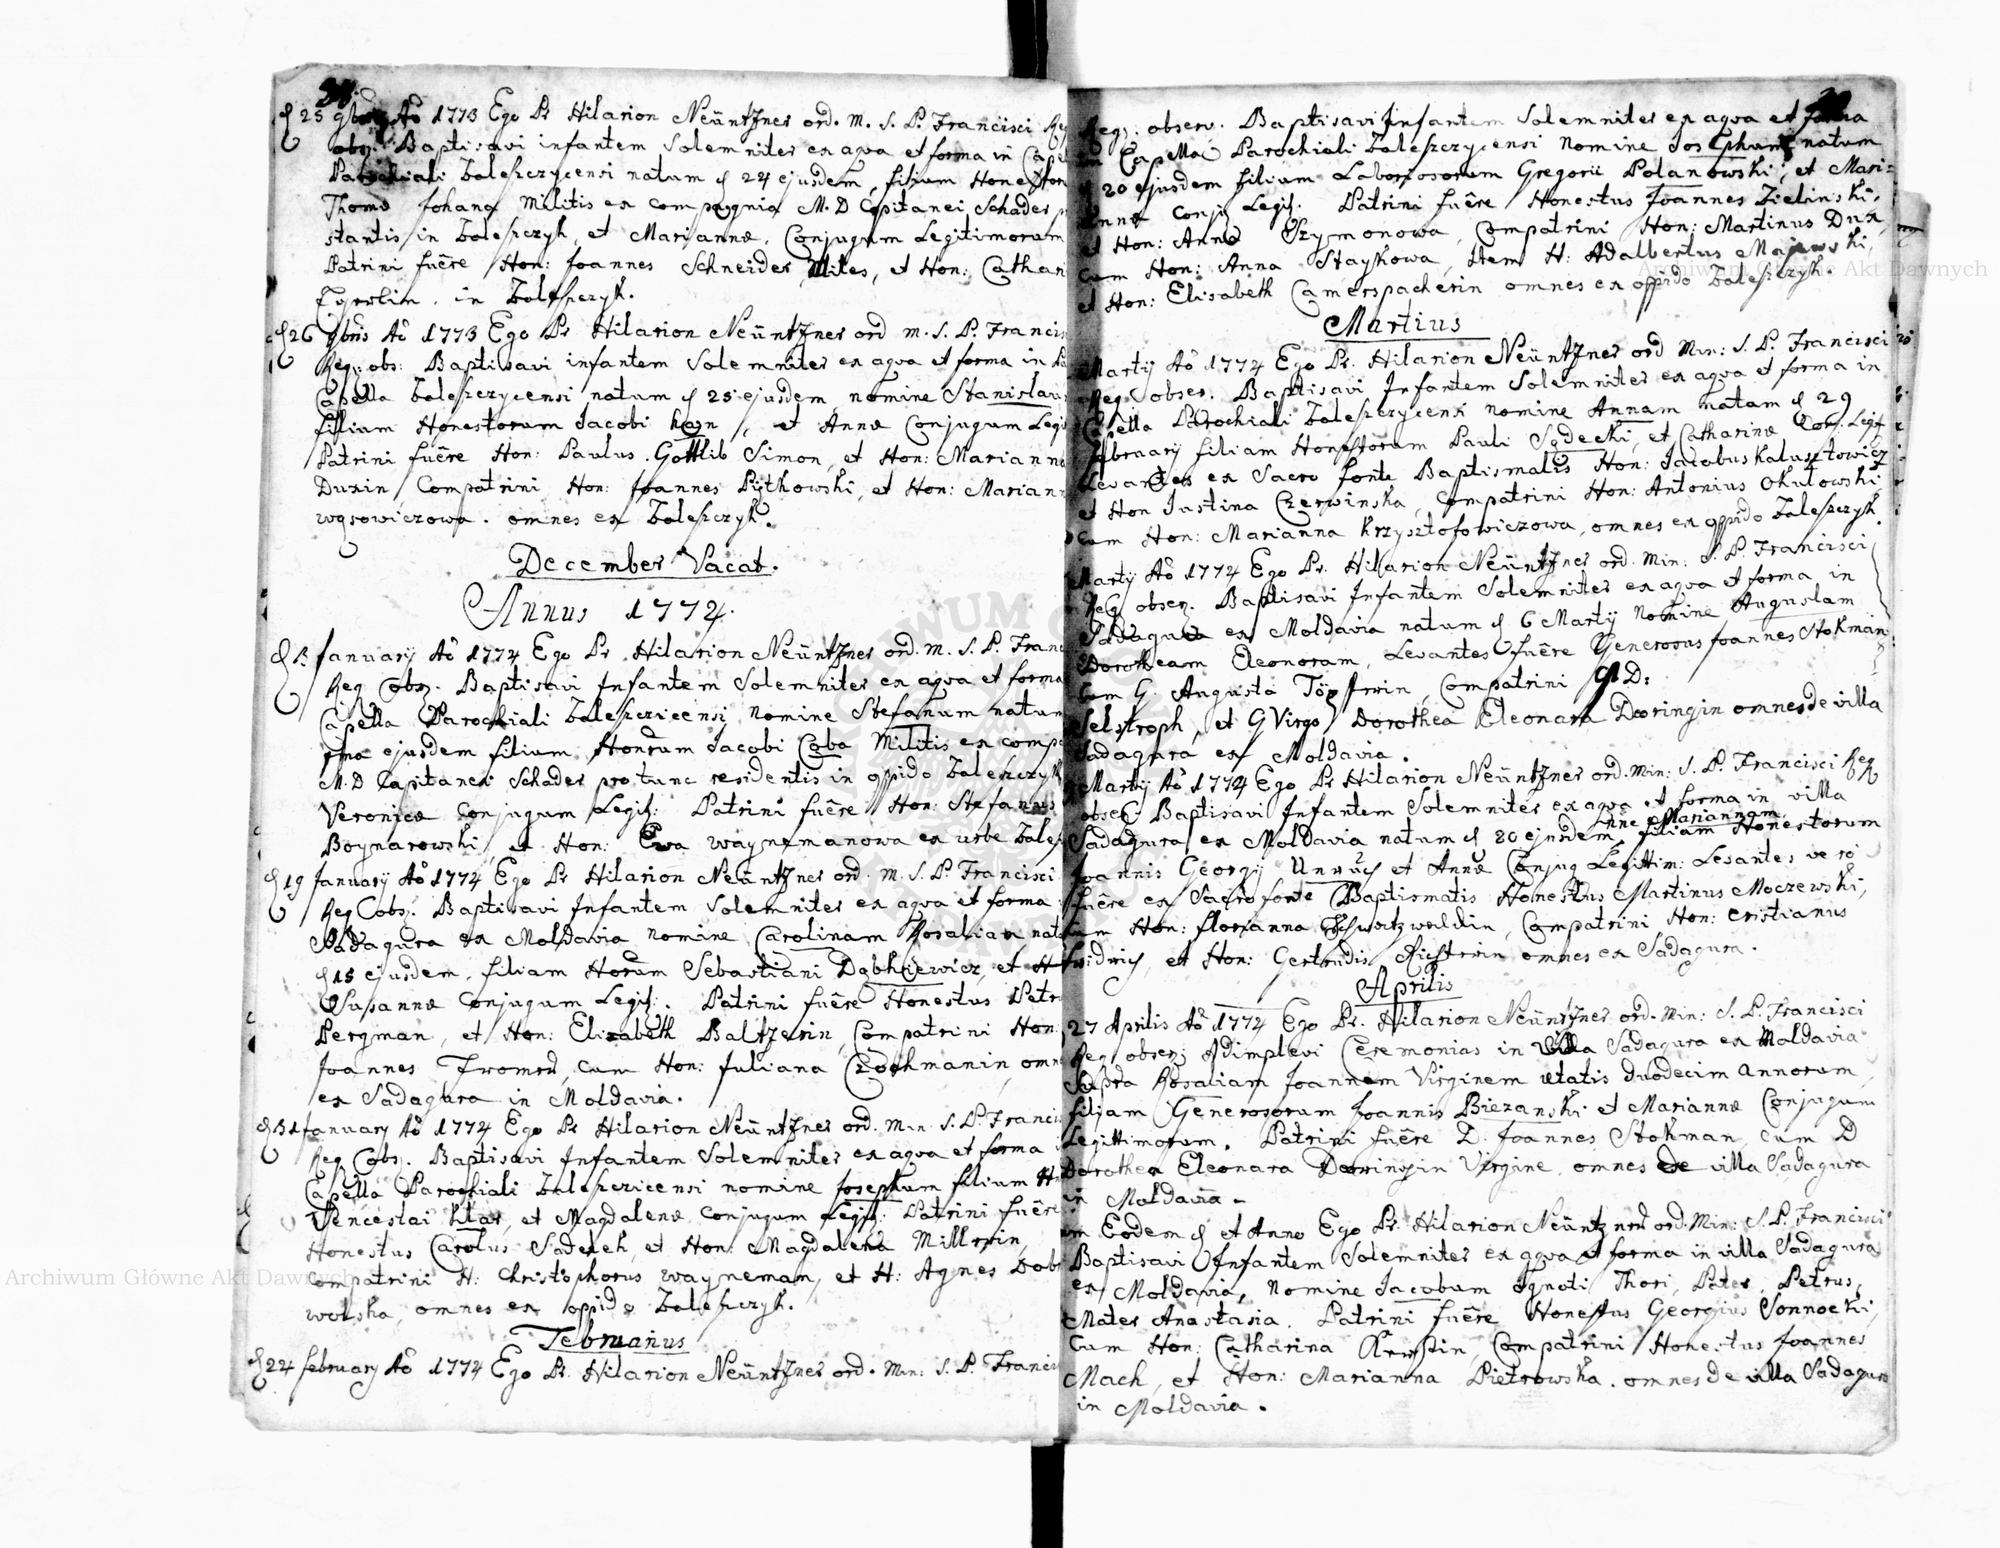 25 9bris Aō 1773 Ego Pr Hilarion Neüntzner ord. M. S. P. Francisci Reg
obs. Baptisavi infantem Solemniter ex aqva et forma in Cape
Parochiali Zaleszczycensi natum 24 ejusdem, filium Honestor
Thomæ Johana Militis ex compagnia M. D Capitanei Schader
stantis in Zaleszczyk, et Mariannæ, Conjugum Legitimorum
Patrini fuêre Hon: Joannes Schneider, Miles, et Hon: Cathar
in Zaleszczyk.
26 9bris Aō 1773 Ego Pr Hilarion Neüntzner ord m. S. P. Francis
Reg: obs: Baptisavi infantem Solemniter ex aqva et forma in
Capella Zaleszczycensi natum 25 ejusdem nomine Stanislau
filium Honestorum Jacobi et Annæ Conjugum Legit
Patrini fuêre Hon: Paulus Gottlib Simon, et Hon: Marianna
Duxin Compatrini Hon: Joannes Piÿtkowski, et Hon: Mariann
wąsowiczowa. omnes ex Zaleszczyk.
December Vacat.
Annus 1774.
January Aō 1774 Ego Pr Hilarion Neüntzner ord. M. S. P. Franc
Reg obs. Baptisavi Infantem Solemniter ex aqva et forma
Capella Parochiali Zaleszcziecensi, nomine Stefanum natum
ejusdem filium Honrum Jacobi Coba Militis ex compa
M. D Capitanei Schader pro tunc residentis in oppido Zaleszczyk
Veronicæ conjugum Legit: Patrini fuêre Hon: Stefanus
Boynarowski, et Hon: Ewa waynemanowa ex urbe Zalesz
19 January Aō 1774 Ego Pr Hilarion Neüntzner ord. M. S. P. Francisci
Reg obs. Baptisavi Infantem Solemniter ex aqva et forma
Sadagura ex Moldavia nomine Carolinam Rosaliam, nata
15 ejusdem, filiam Horum Sebastiani Dąbkiewicz, et H
Susannæ conjugum Legit:. Patrini fuêre Honestus Petr
Bergman, et Hon: Elizabeth Baltzerin, Compatrini Hon:
Joannes Fromer, cum Hon: Juliana omn
ex Sadagura in Moldavia.
31 January Aō 1774 Ego Pr Hilarion Neüntzner ord. Min. S. P. Francis
Reg obs. Baptisavi Infantem Solemniter ex aqva et forma
Capella Parochiali Zaleszcziecensi nomine Josephum filium
Venceslai et Magdalenæ conjugum Legit: Patrini fuêre
Honestus Carolus et Hon: Magdalena Millerin,
compatrini H: Christophorus wayneman, et H: Agnes Dobr
wolska, omnes ex oppido Zaleszczyk.
Februarius
22 february Aō 1774 Ego Pr. Hilarion Neüntzner ord. Min: S. P. Francis
Reg. observ. Baptisavi Infantem Solemniter ex aqva et forma
in Capella Parochiali Zaleszczycensi nomine Josephum natum
20 ejusdem filium Laboriosorum Gregorii Polanowski, et Mari=
annæ conju Legit. Patrini fuêre Honestus Joannes Zielinski,
et Hon: Anna Szymonowa, Compatrini Hon: Martinus Dux,
cum Hon: Anna Staykowa, Item H: Adalbertus Majewski,
et Hon: Elisabeth Camerspacherin omnes ex oppido Zaleszczyk
Martius
Martÿ Aō 1774 Ego Pr. Hilarion Neüntzner ord Min: S. P. Francisci
Reg: obser. Baptisavi Infantem Solemniter ex aqva et forma in
Capella Parochiali Zaleszczycensi nomine Annam natam 29
february filiam Honestorum Pauli Sądecki, et Catharinæ Conj. Legit
Levantes ex Sacro fonte Baptismatis Hon: Jacobus kalusztowicz
et Hon Justina Czerwinska, compatrini Hon: Antonius Okulowski
cum Hon: Marianna krzysztofowiczowa, omnes ex oppido Zaleszczyk.
Martÿ Aō 1774 Ego Pr. Hilarion Neüntzner ord. Min: S. P. Francisci
Reg obser. Baptisavi Infantem Solemniter ex aqva et forma in
Sadagura ex Moldavia natum 6 Martÿ nomine Augustam
Dorotheam Eleonoram, Levantes fuêre Generosus Joannes Stokman
cum G. Augusta Töpfferin, compatrini D:
Selstroph, et G Virgo Dorothea Eleonara Dooringin omnes de villa
Sadagura ex Moldavia.
Martÿ Aō 1774 Ego Pr Hilarion Neüntzner ord. Min: S. P. Francisci Reg
obser. Baptisavi Infantem Solemniter ex aqva et forma in villa
Sadagura ex Moldavia natum 20 ejusdem nne Mariannam, filiam Honestorum
Joannis Georgÿ et Annæ Conjug Legittim: Levantes vero
fuêre ex Sacro fonte Baptismatis Honestus Martinus Moczewski,
cum Hon: florianna Schwartzweldin, Compatrini Hon: Cristianus
fridrich, et Hon: Gertrudis Richterin omnes ex Sadagura.
Aprilis
27 Aprilis Aō 1774 Ego Pr. Hilarion Neüntzner ord. Min: S. P. Francisci
Reg obser: Adimplevi Ceremonias in Villa Sadagura ex Moldavia
supra Rosaliam Joannam Virginem ætatis duodecim annorum,
filiam Generosorum Joannis Biezanski et Mariannæ Conjugum
Legittimorum. Patrini fuêre D. Joannes Stokman cum D
Dorothea Eleonara Dooringin Virgine omnes de villa Sadagura
in Moldavia.
Eodem et Anno Ego Pr. Hilarion Neüntzner ord. Min: S. P. Francisci
Baptisavi Infantem Solemniter ex aqva et forma in villa Sadagura
ex Moldavia, nomine Jacobum Ignoti Thori, Pater Petrus,
Mater Anastasia. Patrini fuêre Honestus Georgius Sonnocki,
cum Hon: Catharina Compatrini Honestus Joannes
Mach, et Hon: Marianna Pietrowska. omnes de villa Sadagura
in Moldavia.
Archiwum Główne Akt Dawnych
Archiwum Główne Akt Dawnych